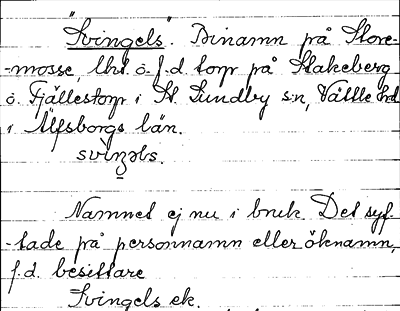 "Svingels". Binamn på Store-
-mosse, lht. o. f.d. torp på Stakeberg
o. Fjällestorp i St. Lundby s:n, Vättle hd
i Älfsborgs län.
Namnet ej nu i bruk. Det syf-
-tade på personnamn eller öknamn,
f.d. besittare
Svingels ek.